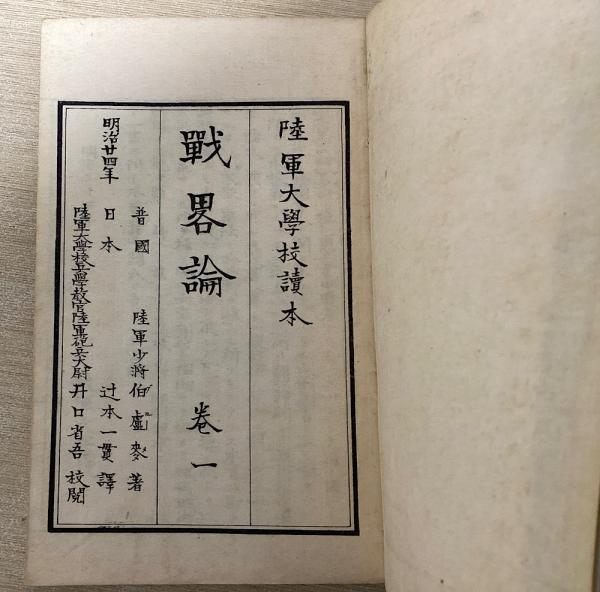 陸軍大學校讀本
戰畧論 卷一
明治廿四年
普國 陸軍少將伯盧麥著
日本 辻本一貫譯
陸軍大學校兵學敎官陸軍砲兵大尉井口省吾校閱